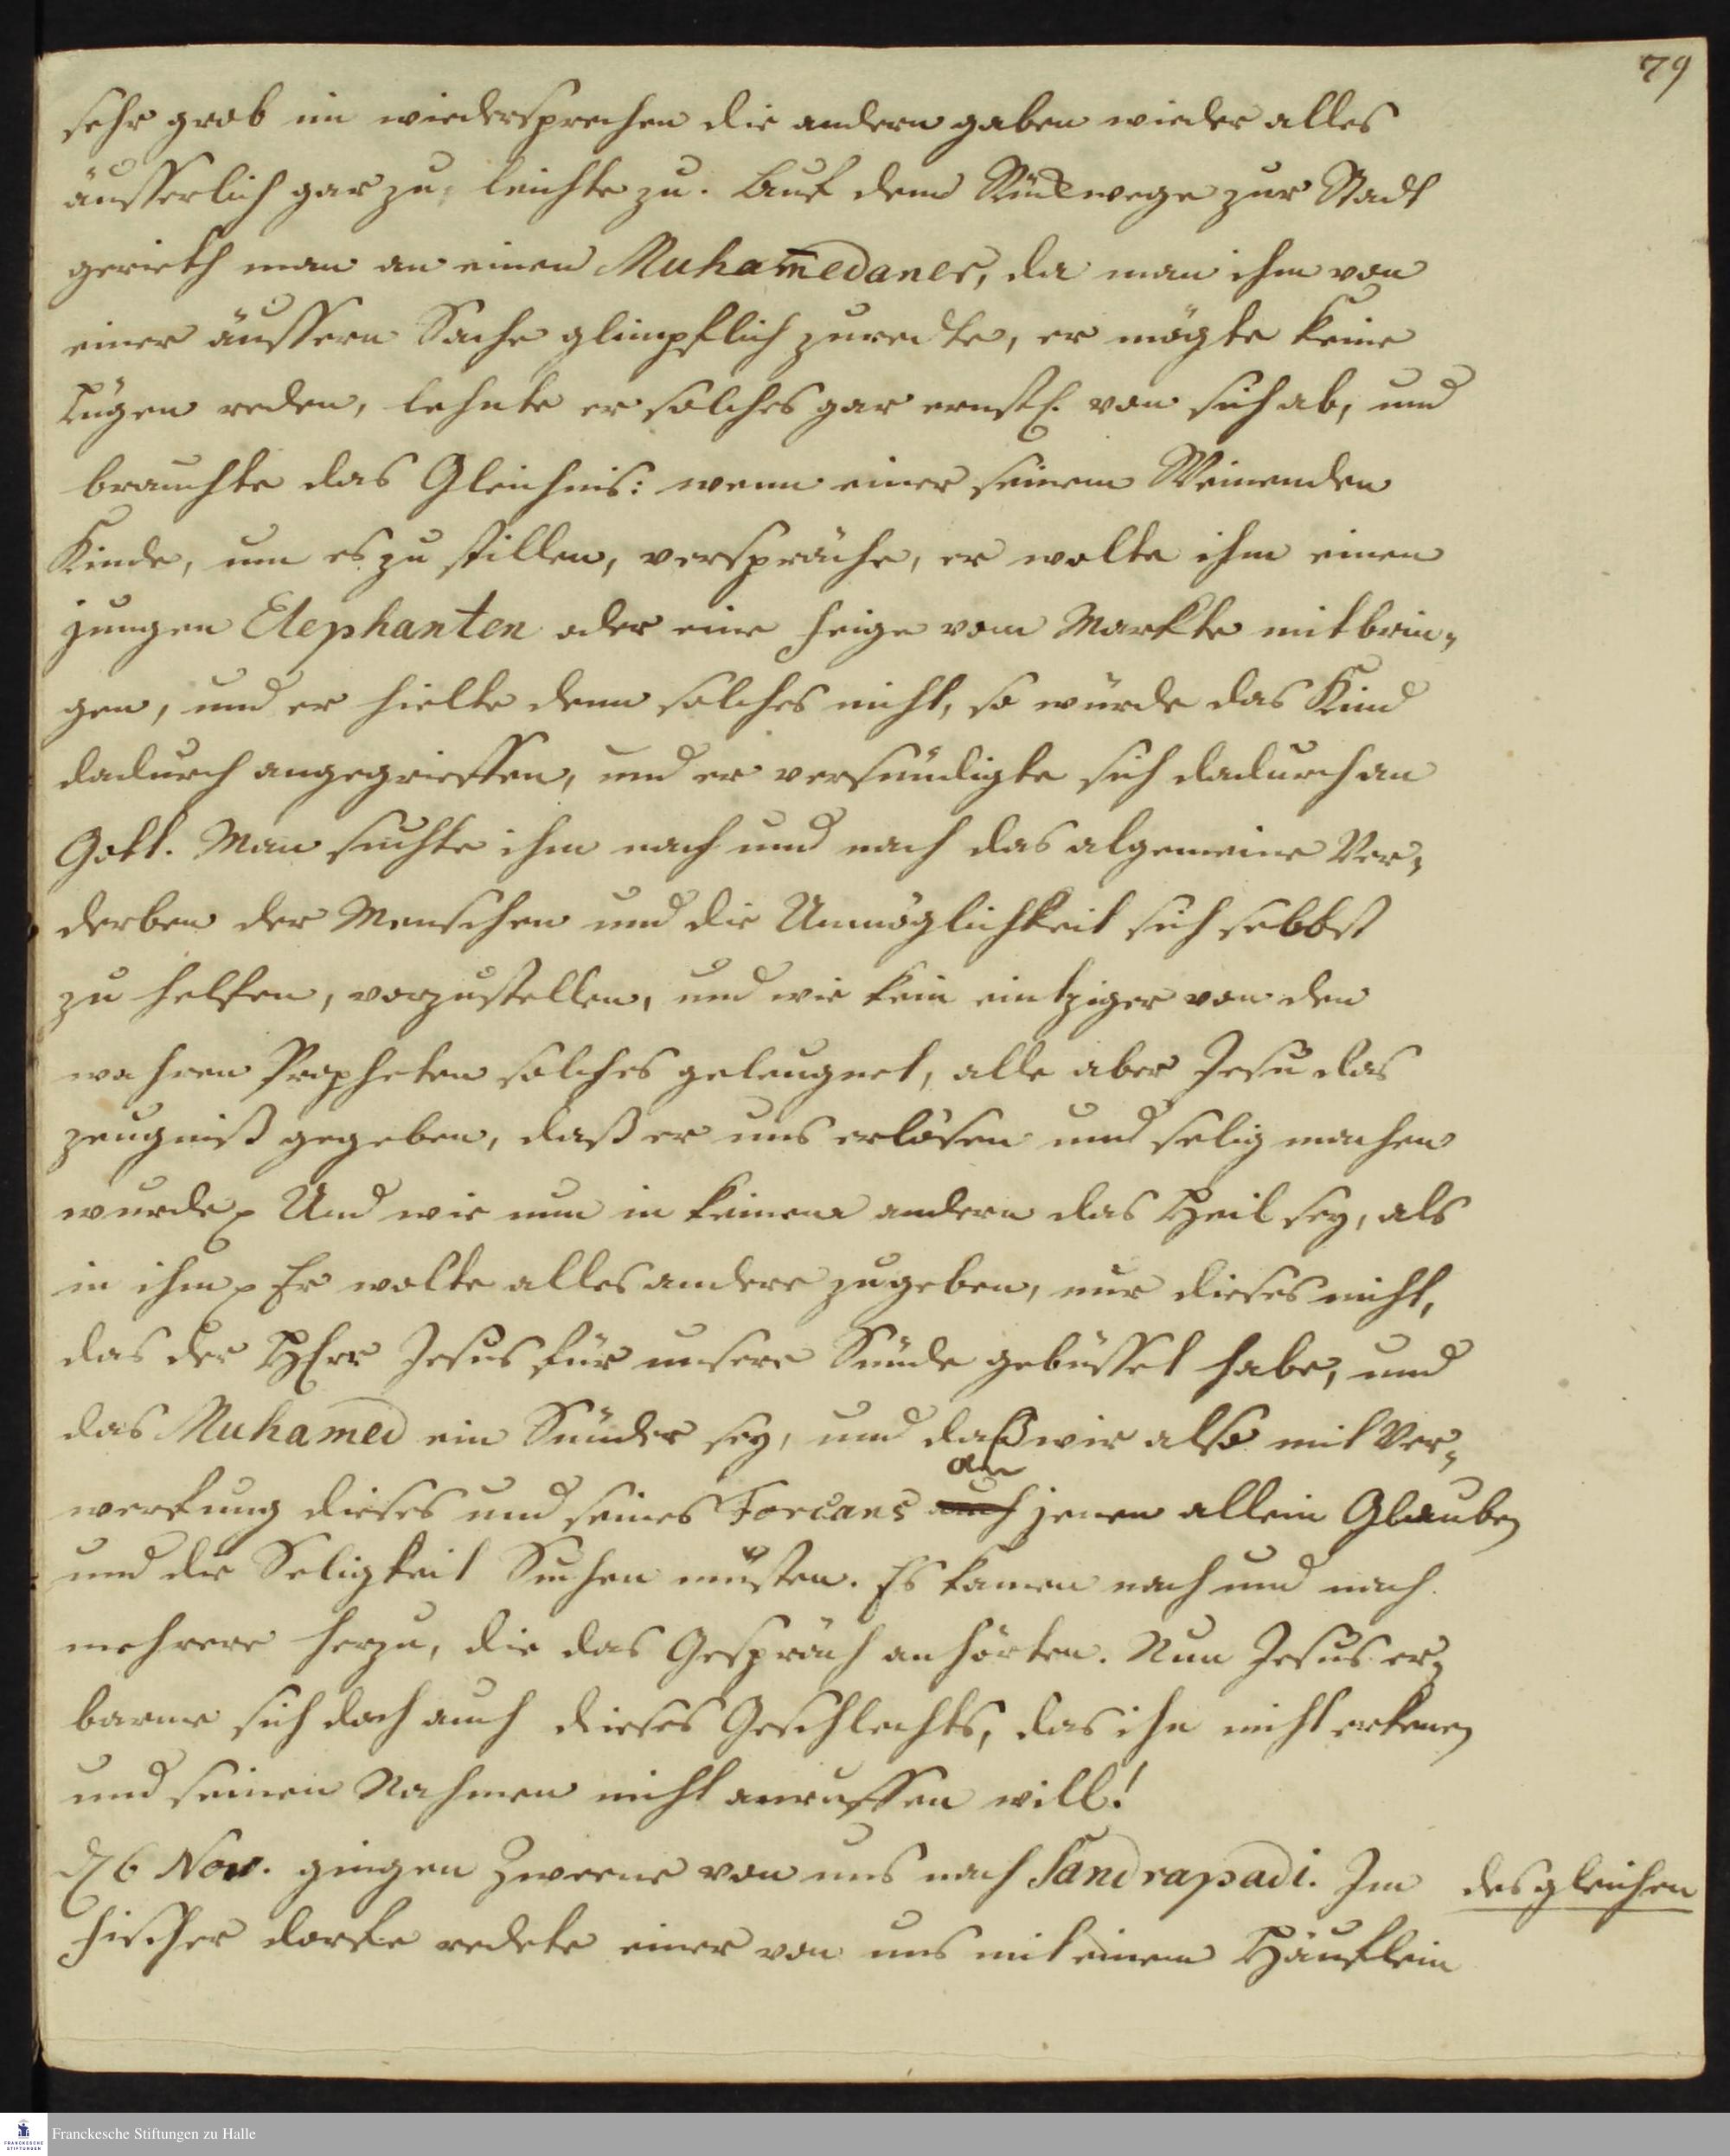 79
sehr grob im wiedersprechen die andern gaben wieder alles
äusserlich gar zu leichte zu. Auf dem Rückwege zur Stadt
gerieth man an einen Muham̅edaner, da man ihm von
einer äussern Sache glimpflich zuredte, er mögte keine
Lügen reden, lehnte er solches gar ernstl. von sich ab, und
brauchte das Gleichnis: wenn einer seinem Weinenden
Kinde, um es zu stillen, verspräche, er wolte ihm einen
jungen Elephanten oder eine feige vom Markte mitbrin„
gen, und er hielte denn solches nicht, so würde das Kind
dadurch angegrieffen, und er versündigte sich dadurch an
Gott. Man suchte ihm nach und nach das algemeine Ver„
derben der Menschen und die Unmöglichkeit sich selbst
zu helfen, vorzustellen, und wie kein eintziger von den
wahren Propheten solches geleugnet, alle aber Jesu das
zeugniß gegeben, daß er uns erlösen und selig machen
wurde. Und wie nun in keinem andern das Heil sey, als
in ihm. Er wolte alles andere zugeben, nur dieses nicht,
das der HErr Jesus für unsere Sünde gebüsset habe, und
das Muhamed ein Sünder sey, und daß wir also mit Ver„
an
werfung dieses und seines Forcans auch jenen allein Glauben
und die Seligkeit Suchen müsten. Es kamen nach und nach
mehrere herzu, die das Gespräch anhörten. Nun Jesus er„
barme sich doch auch dieses Geschlechts, das ihn nicht erkenen
und seinen Nahmen nicht anruffen will!
d. 6 Nov. gingen Zweene von uns nach Sandrapadi. Im
desgleichen
fischer dorfe redete einer von uns mit einem Häuflein
Franckesche Stiftungen zu Halle
FRANCKESCHE
STIFTUNGEN